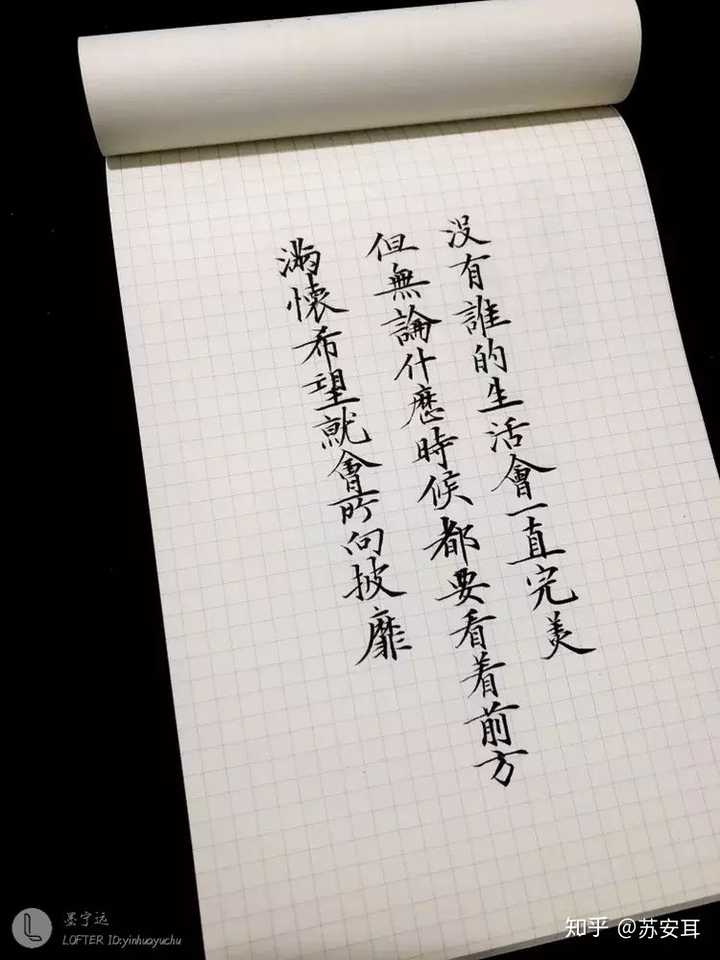 没有誰的生活會一直完美
但無論什麽時候都要看着前方
滿懷希望就會所向披靡
墨宁远
LOFTER ID:yinhuayuchu
知乎 @苏安耳